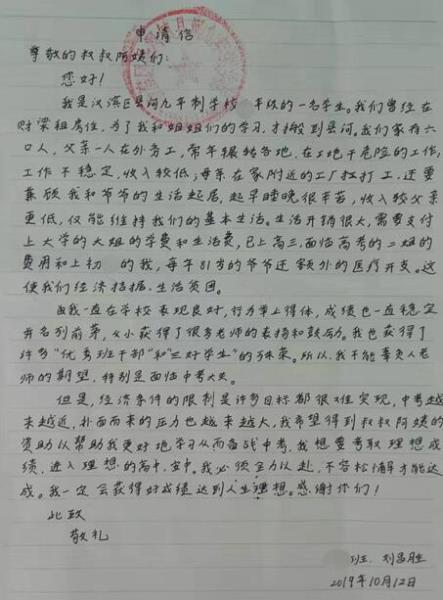 申请信
尊敬的叔叔阿姨们:
您好!
我是汉滨区县河九年制学校 年级的一名学生。我们曾经在
财梁租房住,为了我和姐姐们的学习,才搬到县河。我们家有六
口人,父亲一人在外务工,常年辗转各地,在工地干危险的工作,
工作不稳定,收入较低;母亲在家附近的工厂打工,还要
兼顾我和爷爷的生活起居,起早睡晚很辛苦,收入较父亲
更低,仅能维持我们的基本生活。生活开销很大,需要支付
上大学的大姐的学费和生活费,已上高三,面临高考的二姐的
费用和上初 的我,每年81岁的爷爷还额外的医疗开支。这
使我们经济拮据,生活贫困。
由我一直在学校表现良好,行为举止得体,成绩也一直稳定
并名列前茅,从小获得了很多老师的表扬和鼓励。我也获得了
许多“优秀班干部”和“三好学生”的殊荣。所以,我不能辜负人老
师的期望,特别是面临中考大关。
但是,经济条件的限制是许多目标都很难实现,中考越
来越近,扑面而来的压力也越来越大,我希望得到叔叔阿姨的
资助以帮助我更好地学习从而备战中考,我想要考取理想成
绩,进入理想的高中,安中。我必须全力以赴,不容松懈才能达
成。我一定会获得好成绩达到人生理想。感谢你们!
此致
敬礼
班:刘昌胜
2019年10月12日